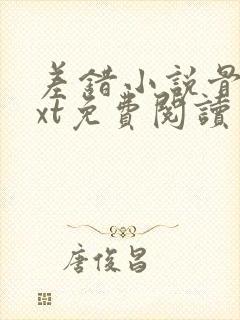 差錯小説骨
xt免費閱讀
唐俊昌